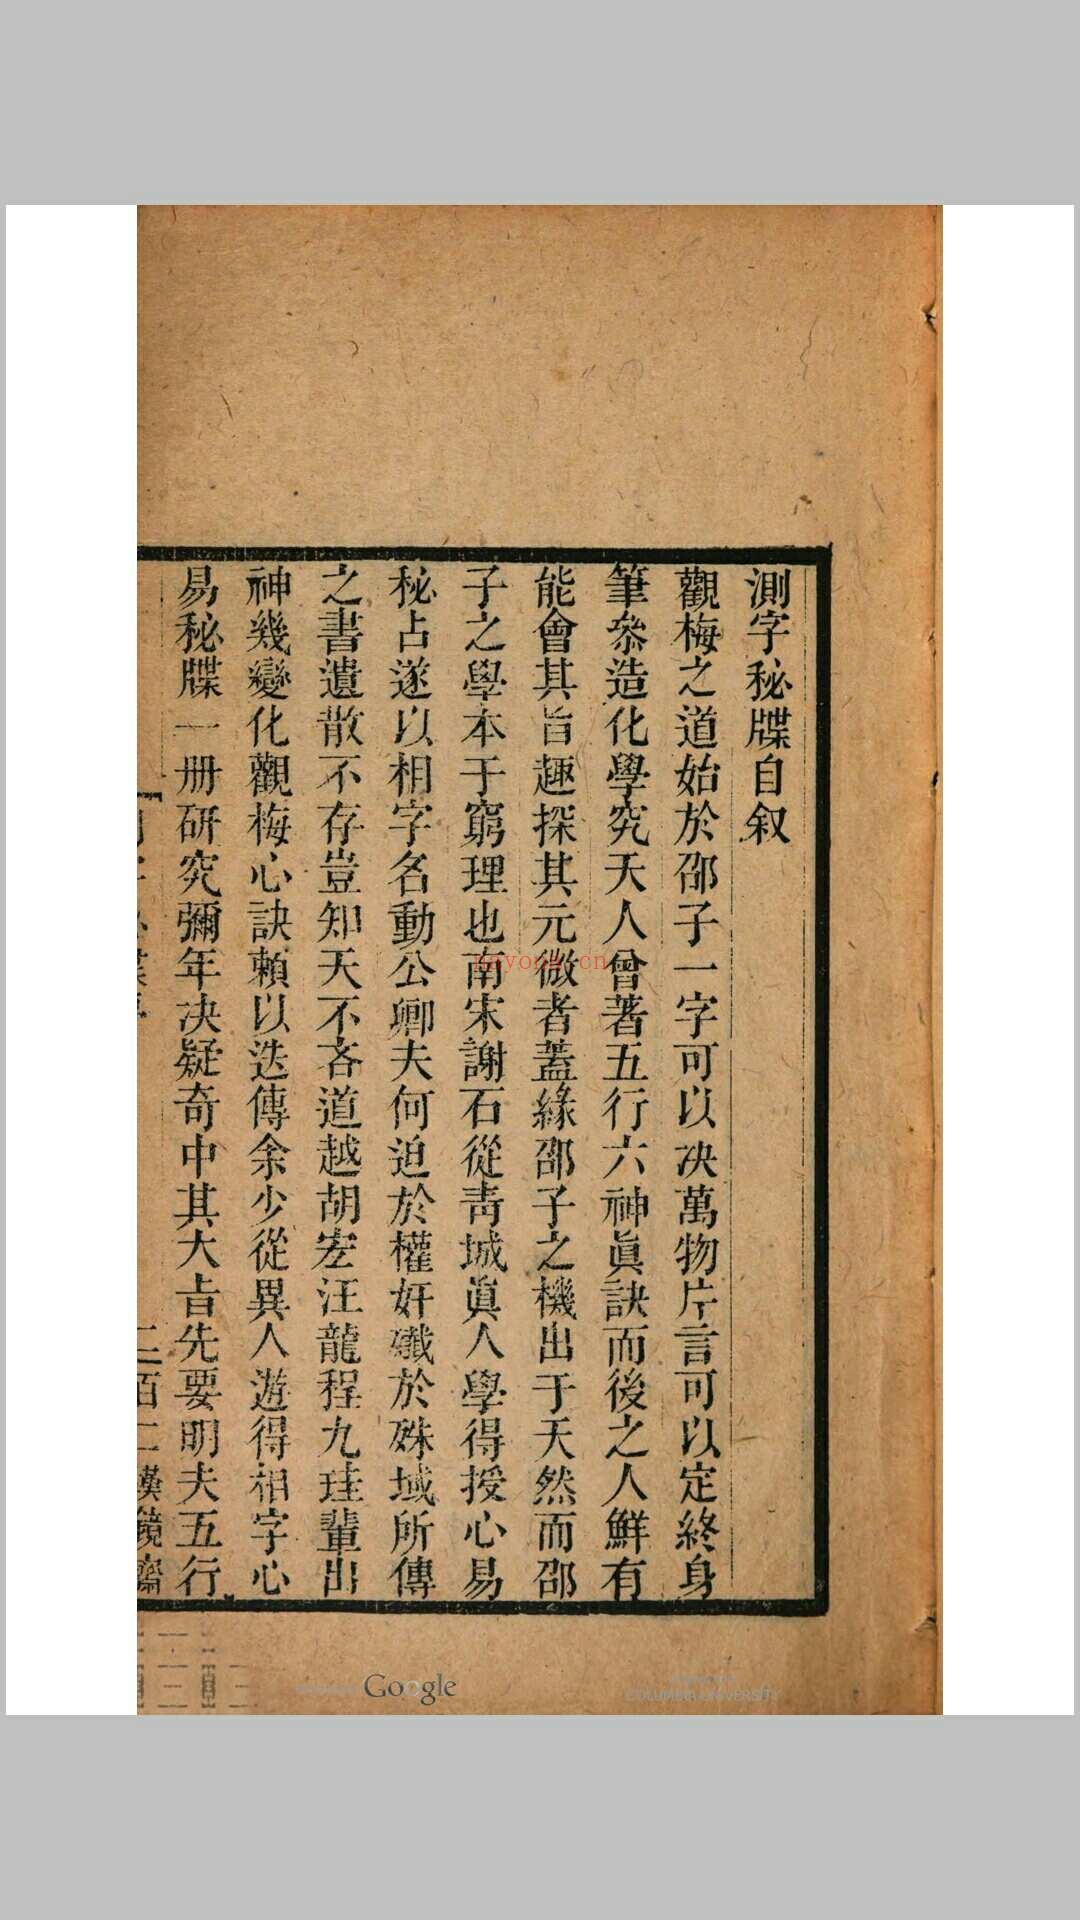 測字秘牒自叙
觀梅之道始於邵子一字可以决萬物片言可以定終身
筆叅造化學究天人曾著五行六神眞訣而後之人鮮有
能會其旨趣探其元微者蓋緣邵子之機出于天然而邵
子之學本于窮理也南宋謝石從靑城眞人學得授心易
秘占遂以相字名動公卿夫何迫於權奸殱於殊域所傳
之書遺散不存豈知天不吝道越胡宏汪龍程九珪輩出
神幾變化觀梅心訣賴以迭傳余少從異人遊得相字心
易秘牒一册研究彌年决疑奇中其大㫖先要明夫五行
二百二 漢鏡齋
nayona.cn
Google
COLUMBIA UNIVERSITY